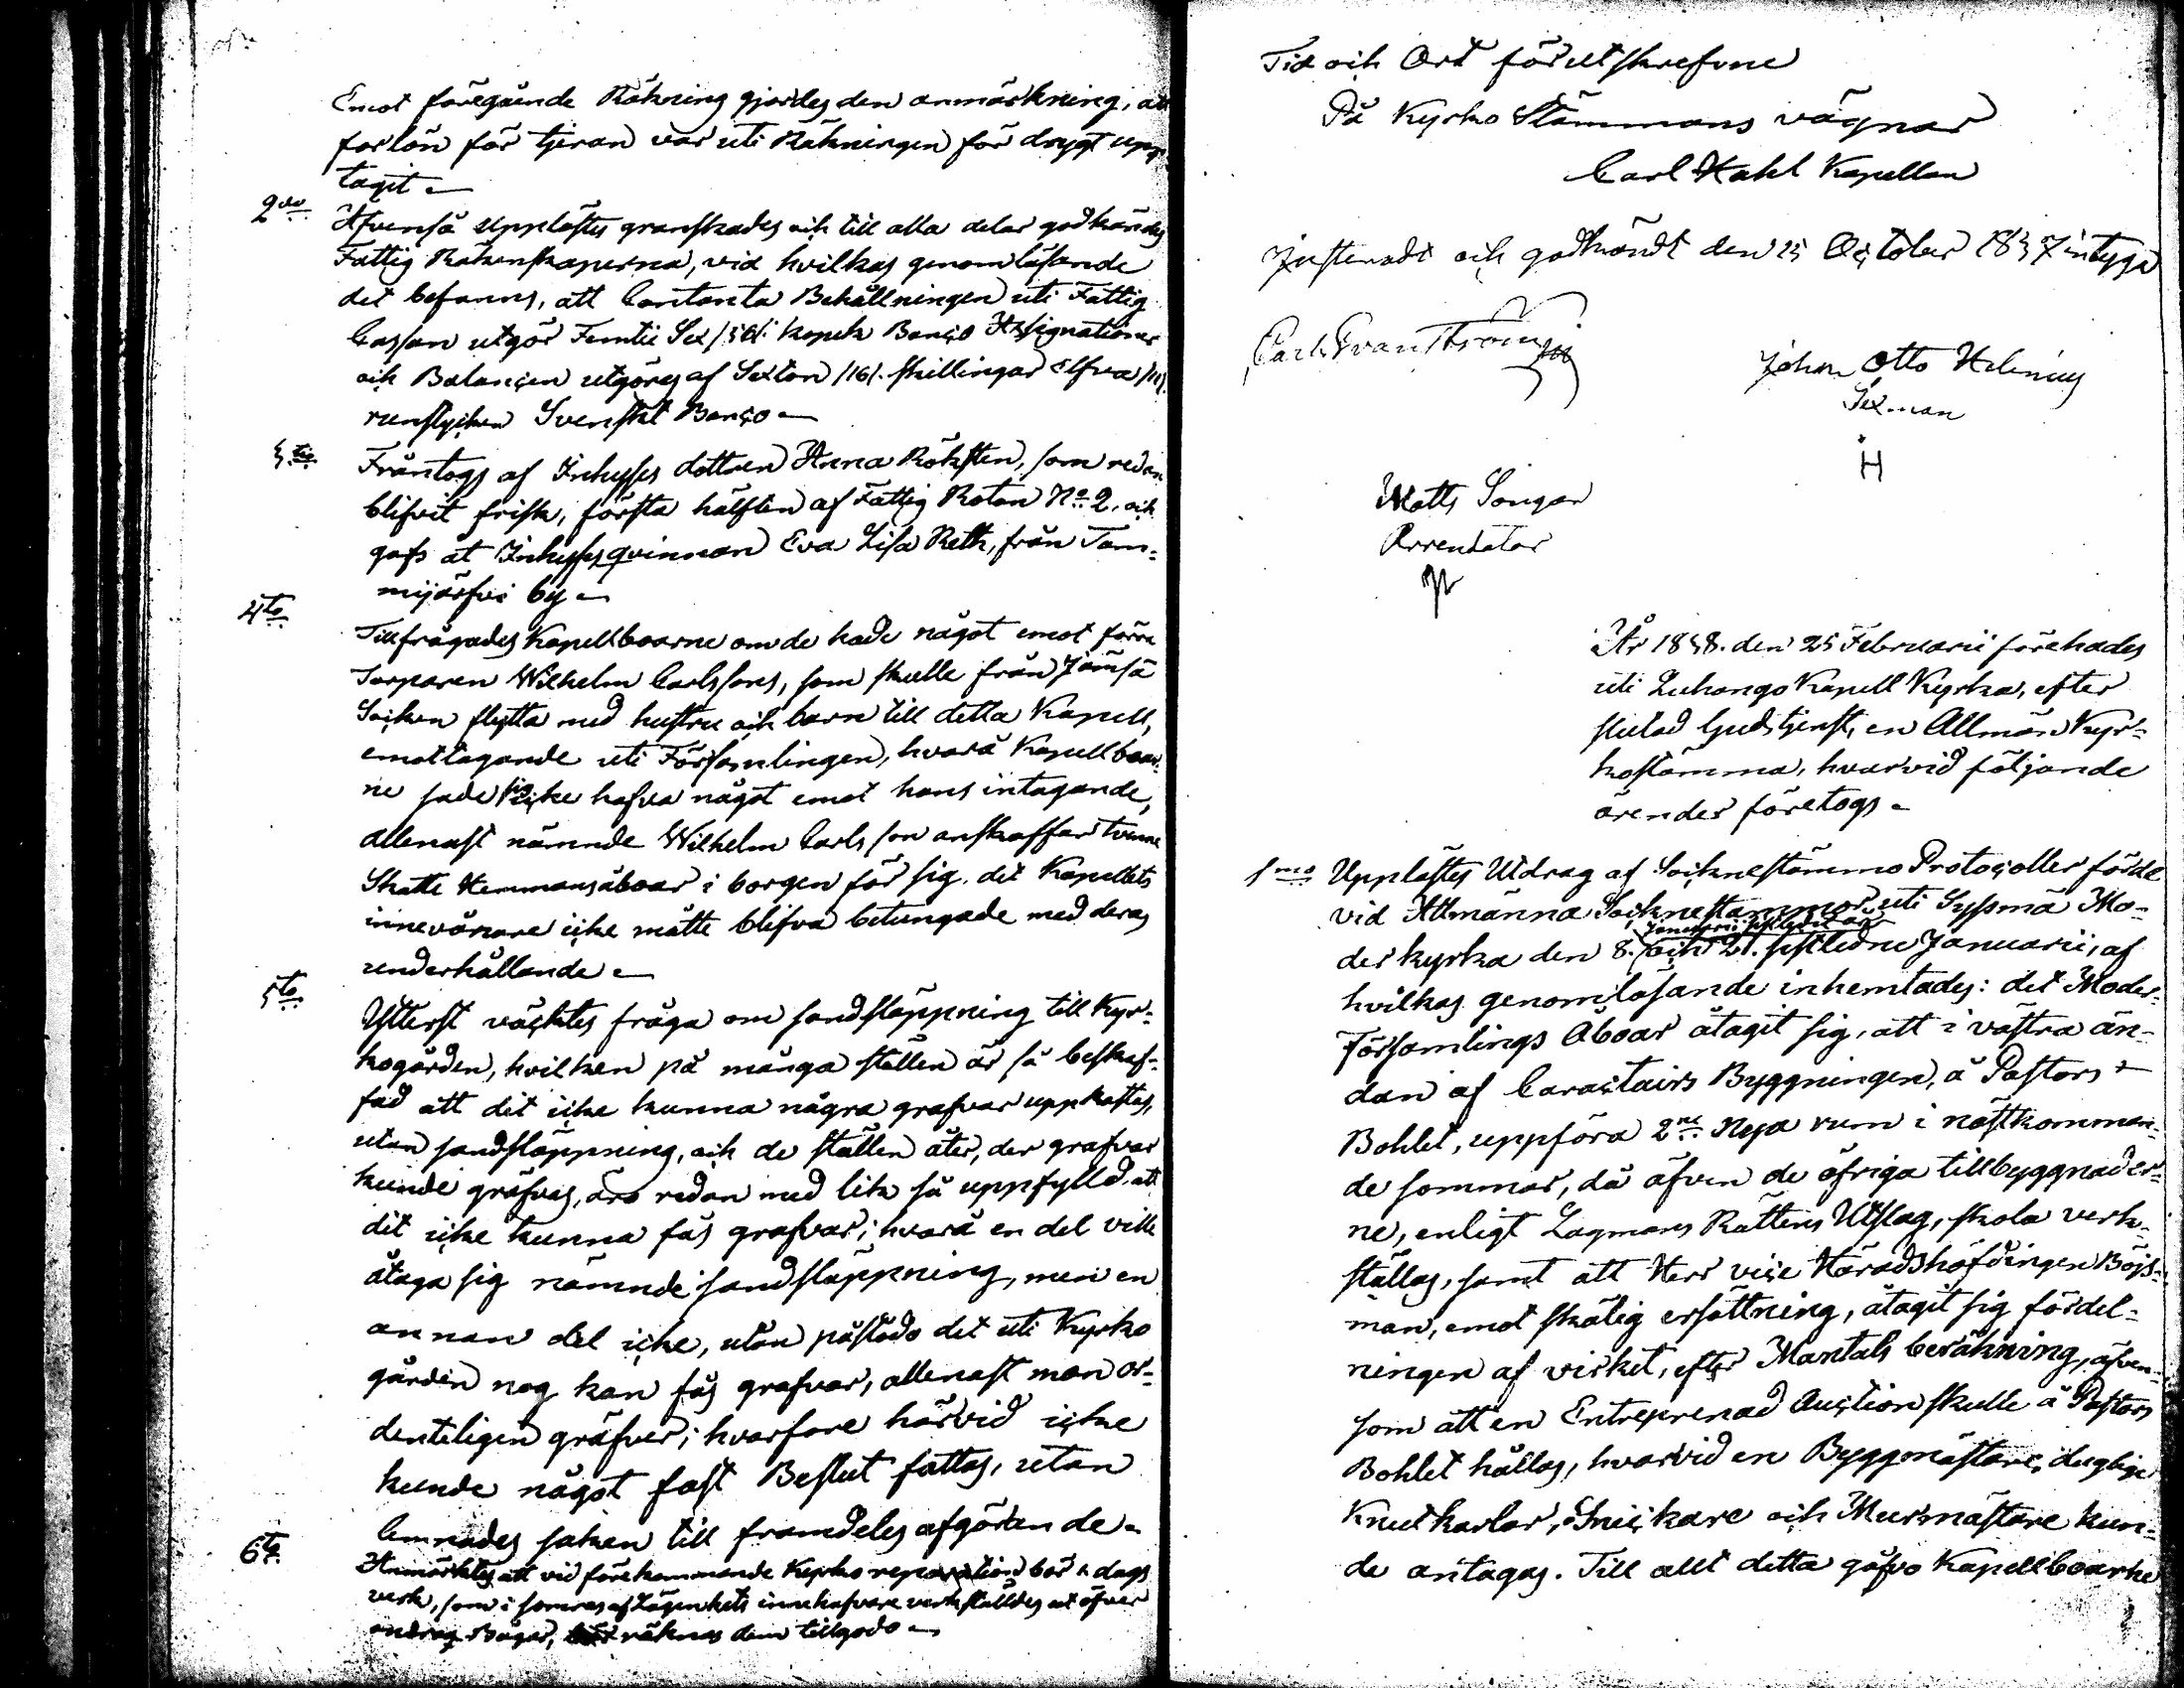 Emot föregående Räkning gjordes den anmärkning, att
forlön för tjeran var uti Räkningen för drygt upp-
tagit.
2do Äfvenså upplästes granskades och till alla delar godkändes
Fattig Räkenskaperna, vid hvilkas genomläsande
det befanns, att Contanta Behållningen uti Fattig
Cassan utgör Femtie Sex /56/. kopek Banco Assignationer
och Balancen utgöres af Sexton /16/. skillingar Elfva /11/.
runstycken Svenskt Banco
3tio Fråntogs af Inhyses dottren Anna Röksten, som redan
blifvit frisk, första hälften af Fattig Rotan No 2. och
gafs åt Inhyses qvinnan Eva Lisa Reth, från Tam-
mijärfvi by
4to Tillfrågades Kapellboarne om de hade något emot förre
Torparen Wilhelm Carlssons, som skulle från Jämsä
Socken flytta med hustru och barn till detta Kapell,
emottagande uti Församlingen, hvarå Kapellboar-
ne sade sig icke hafva något emot hans intagande,
allenast nämnde Wilhelm Carlsson anskaffar tvenne
Skatte Hemmansåboar i borgen för sig. det Kapellets
innevånare icke måtte blifva betungade med deras
underhållande
5to Ytterst väcktes fråga om sandsläppning till Kyr-
kogården, hvilken på många ställen är så beskaf-
fad att dit icke kunna några grafvar uppkastas,
utan sandsläppning, och de ställen åter, der grafvar
kunde gräfvas, äro redan med lik så uppfylld. att
dit icke kunna fås grafvar; hvarå en del ville
åtaga sig nämnde sandsläppning, men en
annan del icke, utan påstodo det uti Kyrko
gården nog kan fås grafvar, allenast man or-
denteligen gräfver; hvarfore härvid icke
kunde något fast Beslut fattas, utan
lemnades saken till framdeles afgörande.
6to Anmärktes att vid förekommande Kyrko reparation bör dags
verk, som i somras af Lägenhets innehafvare verkställdes ut öfver
andras Bågar, räknas dem tillgodo
Tid och Ort förutskrefvne
På Kyrko Stämmans vägnar
Carl Hahl Kapellan
Justeradt och godkändt den 15 October 1837 intyga
Johan Otto Helenius
Sexman
H
Matts Songar
Arrendator
År 1838. den 25 Februarii förehades
uti Luhango Kapell Kyrka, efter
slutad Gudstjenst, en Allmän Kyr-
kostämma, hvarvid följande
ärender företogs.
1mo Upplästes Utdrag af Sockenestämmo Protocoller förde
vid Allmänna Socknestämmor uti Sysmä Mo-
Januarii sistledit år
der kyrka den 8. och 21. sistledne Januarii, af
hvilkas genomläsande inhemtades: det Moder-
Församlings Åboar åtagit sig, att i västra än-
dan af Caractairs Byggningen, å Pastors
Bohlet, uppföra 2ne Nya rum i nästkomman-
de sommar, då äfven de öfriga tillbyggnader-
ne, enligt Lagmans Rättens Utslag, skola verk-
ställas, samt att Herr vice Häradshöfdingen Böjs-
man, emot skälig ersättning, åtagit sig fördel-
ningen af virket, efter Mantals beräkning, äfven-
som att en Entreprenad Auction skulle å Pastors
Bohlet hållas, hvarvid en Byggmästare, duglige
Knutkarlar, Snickare och Murmästare kun-
de antagas. Till allt detta gåfvo Kapellboarne